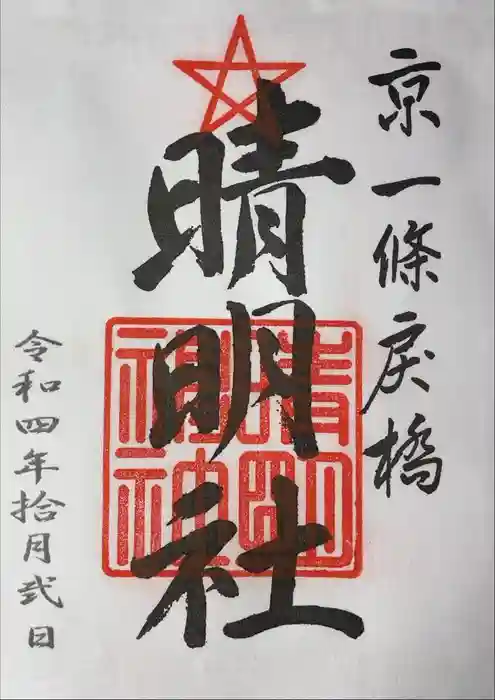 京一條戻橋
晴明社
晴明神社
令和四年拾月弐日